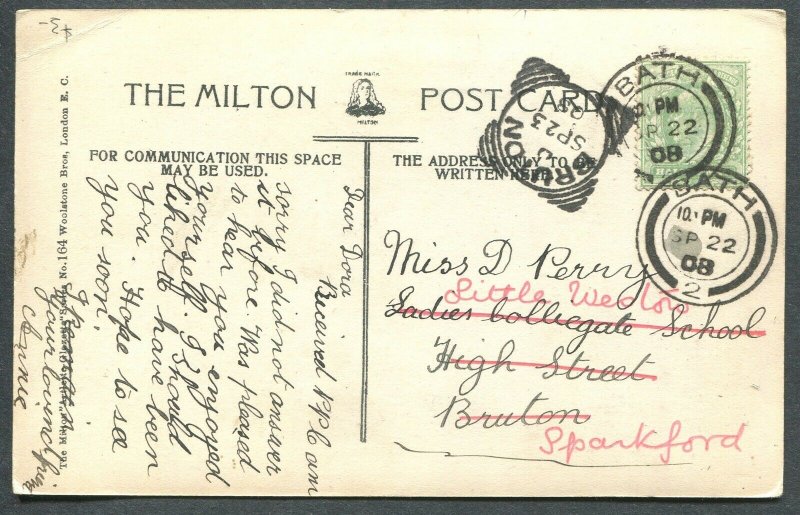 THE MILTON
TRADE MARK
MILTON
POST CARD
FOR COMMUNICATION THIS SPACE
MAY BE USED.
THE ADDRESS ONLY TO BE
WRITTEN HERE
The Milton No. 164 Woolstone Bros, London E. C.
Dear Dora
Received P.P.C am
sorry I did not answer
it before. Was pleased
to hear you enjoyed
yourself. I should
liked to have been
you. Hope to see
you soon.
your loving
Annie
Miss D Perry
Little Weston
Ladies Collegate School
High Street
Bruton
Sparkford.
BRUTON
SP 23
08
BATH
PM
SP 22
08
BATH
10. PM
SP 22
08
2